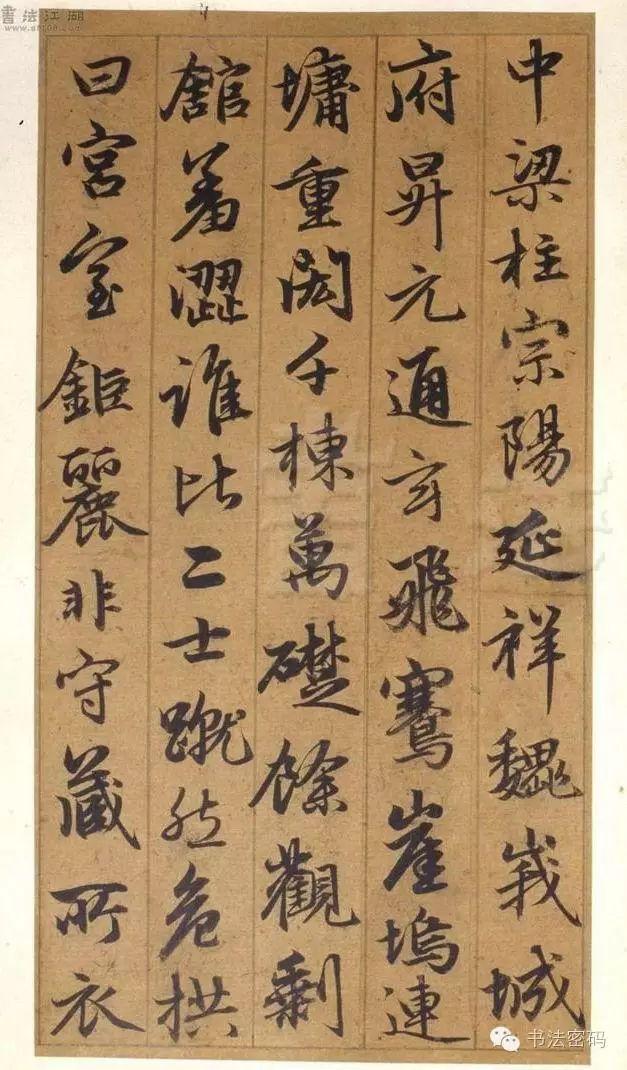 中梁柱宗陽延祥巍峩城
府昇元通玄飛騫崖塢連
墉重闳千棟萬礎餘觀剩
舘羞澀誰比二士蹴然危拱
曰宮室鉅麗非守藏所衣
書法江湖
书法密码